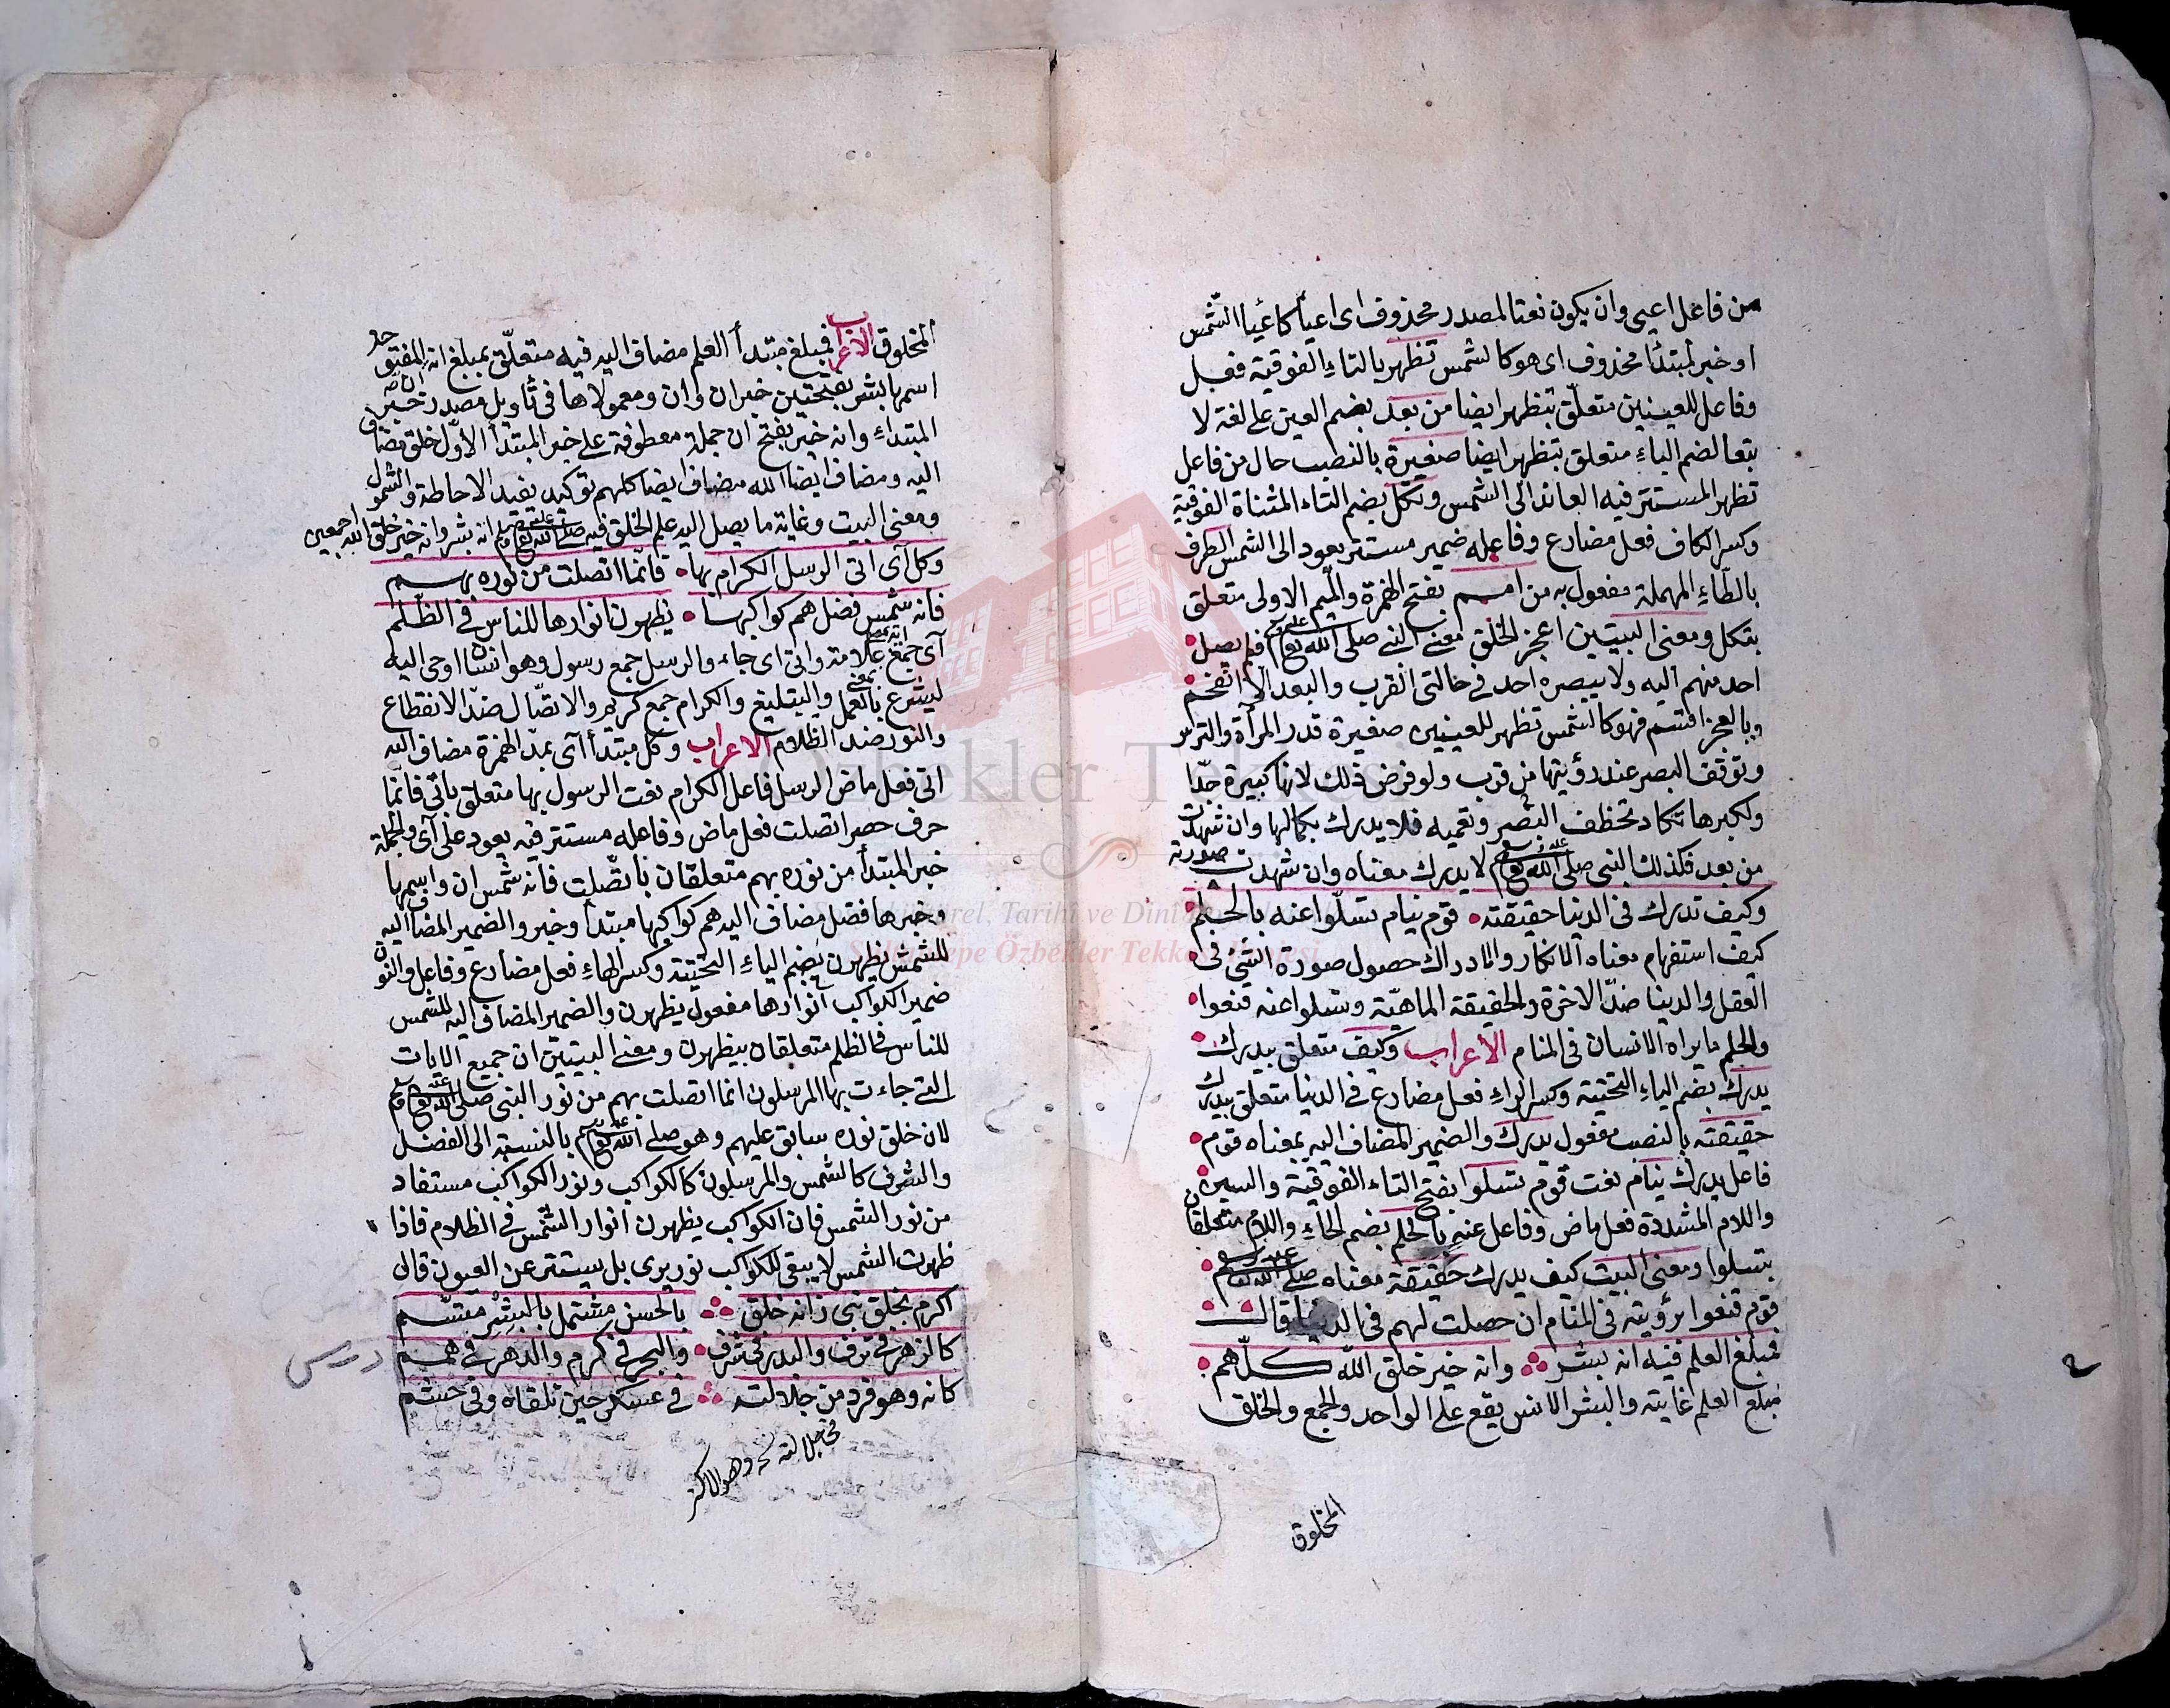 من فاعل اعيى وان يكون نعتا لمصدر محذوف اى اعياً كاعيا الشّمس
او خبر لمبتدأ محذوف اى هو كالشمس تظهر بالتاء الفوقية فعل
وفاعل للعينين متعلّق بتظهر ايضا من بعد بضم العين على لغة لا
بتعا لضم الباء متعلق بتظهر ايضا صغيرة بالنصب حال من فاعل
تظهر المستتر فيه العائد الى الشمس وتكل بضم التاء المثناة الفوقية
وكسر الكاف فعل مضارع وفاعله ضمير مستتر يعود الى الشمس الطرف
بالطّاء المهملة مفعول به من امم بفتح الهمزة والميم الاولى متعلق
بتكل ومعنى البيتين اعجز الخلق معنى النبى صلى الله تعالى عليه وسلم فلم يصل
احد منهم اليه ولا يبصره احد فى حالتى القرب والبعد الا انفحم
وبالعجز اقتسم فهو كالشمس تظهر للعينين صغيرة قدر المرأة والترس
وتوقف البصر عند رؤيتها من قرب ولو فرض ذلك لانها كبيرة جدّا
ولكبرها تكاد تخطف البصر وتعميه فلا يدرك بكمالها وان شهدت
من بعد فكذلك النبى صلى الله تعالى عليه وسلم لا يدرك معناه وان شهدت صورته
وكيف تدرك فى الدنيا حقيقته قوم نيام تسلّوا عنه بالحلم
كيف استفهام معناه الانكار والادراك حصول صورة الشئ فى
العقل والدينا ضدّ الاخرة والحقيقة الماهيّة وتسلوا عنه قنعوا
والحلم ما يراه الانسان فى المنام الأعراب وكيف متعلق بيدرك
يدرك بضم الياء التحتية وكسر الراء فعل مضارع فى الدنيا متعلق بيدرك
حقيقته بالنصب مفعول يدرك والضمير المضاف اليه بمعناه قوم
فاعل يدرك نيام نعت قوم تسلوا بفتح التاء الفوقية والسين
واللام المشددة فعل ماض وفاعل عنه بالحلم بضم الحاء واللام متعلقان
بتسلوا ومعنى البيت كيف يدرك حقيقة معناه صلى الله تعالى عليه وسلم
قوم قنعوا برؤيته فى المنام ان حصلت لهم فى الدنيا قال
فمبلغ العلم فيه انه بشر وانه خير خلق الله كلّهم
مبلغ العلم غايته والبشر الانس يقع على الواحد والجمع والخلق
المخلوق
المخلوق الاعراب فمبلغ مبتدأ العلم مضاف اليه فيه متعلّق بمبلغ انه المفتوحة
اسمها بشر بفتحتين خبر ان وان ومعمولاها فى تأويل مصدر خبر
المبتداء وانه خير بفتح ان جملة معطوفة على خبر المبتدأ الأوّل خلق مضاف
اليه ومضاف ايضا الله مضاف ايضا كلهم توكيد يفيد الاحاطة والشمول
ومعنى البيت وغاية ما يصل اليه علم الخلق فيه صلى الله تعالى عليه وسلم انه بشر وانه خير خلق الله اجمعين
وكل آى اتى الرسل الكرام بها فانّما اتصلت من نوره بهم
فانه شمس فضل هم كواكبها يظهرن انوارها للناس فى الظّلم
آى جمع آية بمعنى علامة واتى اى جاء والرسل جمع رسول وهو انسان اوحى اليه
ليشرع بالعمل والتبليغ والكرام جمع كريم والاتصّال ضدّ الانقطاع
والنور ضد الظلام الاعراب وكل مبتدأ آى بمدّ الهمزة مضاف اليه
اتى فعل ماض الرسل فاعل الكرام نعت الرسول بها متعلق باتى فانّما
حرف حصر اتصلت فعل ماض وفاعله مستتر فيه يعود على آى والجملة
خبر المبتدأ من نوره بهم متعلقان باتصّلت فانه شمس ان واسمها
وخبرها فضل مضاف اليه هم كواكبها مبتدأ وخبر والضمير المضاف اليه
للشمس يظهرن بضم الياء التحتية وكسر الهاء فعل مضارع وفاعل والنون
ضمير الكواكب انوارها مفعول يظهرن والضمير المضاف اليه للشمس
للناس فى الظلم متعلقان بيظهرن ومعنى البيتين ان جميع الايات
التى جاءت بها المرسلون انما اتصلت بهم من نور النبى صلى الله تعالى عليه وسلم
لان خلق نوره سابق عليهم وهو صلى الله تعالى عليه وسلم بالنسبة الى الفضل
والشرف كالشمس والمرسلون كالكواكب ونور الكواكب مستفاد
من نور الشمس فان الكواكب يظهرن انوار الشّمس فى الظلام فاذا
ظهرت الشمس لا يبقى للكواكب نور يرى بل يستتر عن العيون قال
اكرم بخلق نبى زانه خلق بالحسن مشتمل بالبشر متسّم
كالزهر فى ترف والبدر فى شرف والبحر فى كرم والدهر فى همم
درس
كانه وهو فرد من جلالته فى عسكر حين تلقاه وفى حشم
وهو الاكثر
Özbekler Tekkesi